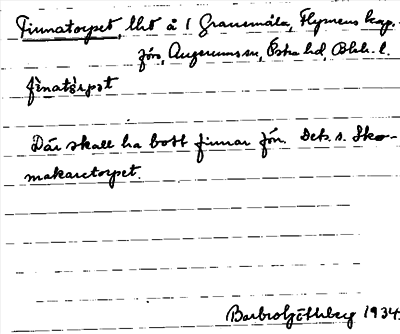 Finnatorpet, lht å 1 Gransmåla, Flymens kap.
förs., Augerums sn, Östra hd, Blek. l.
fìnatὰrpət
Där skall ha bott finnar förr. Dets. s. Sko-
makaretorpet.
Barbro Göthberg 1934.